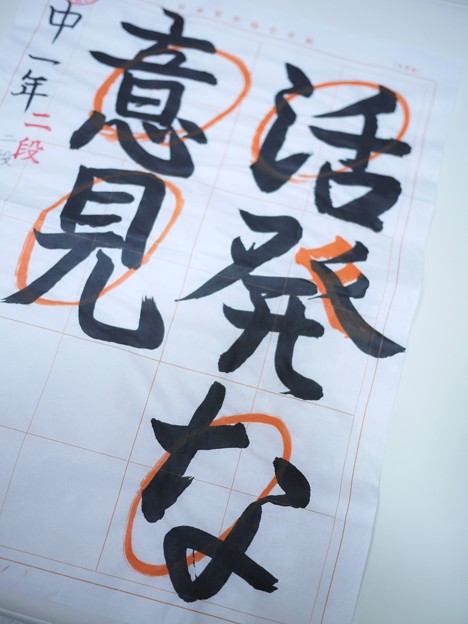 活発な
意見
中一年
二段
二段